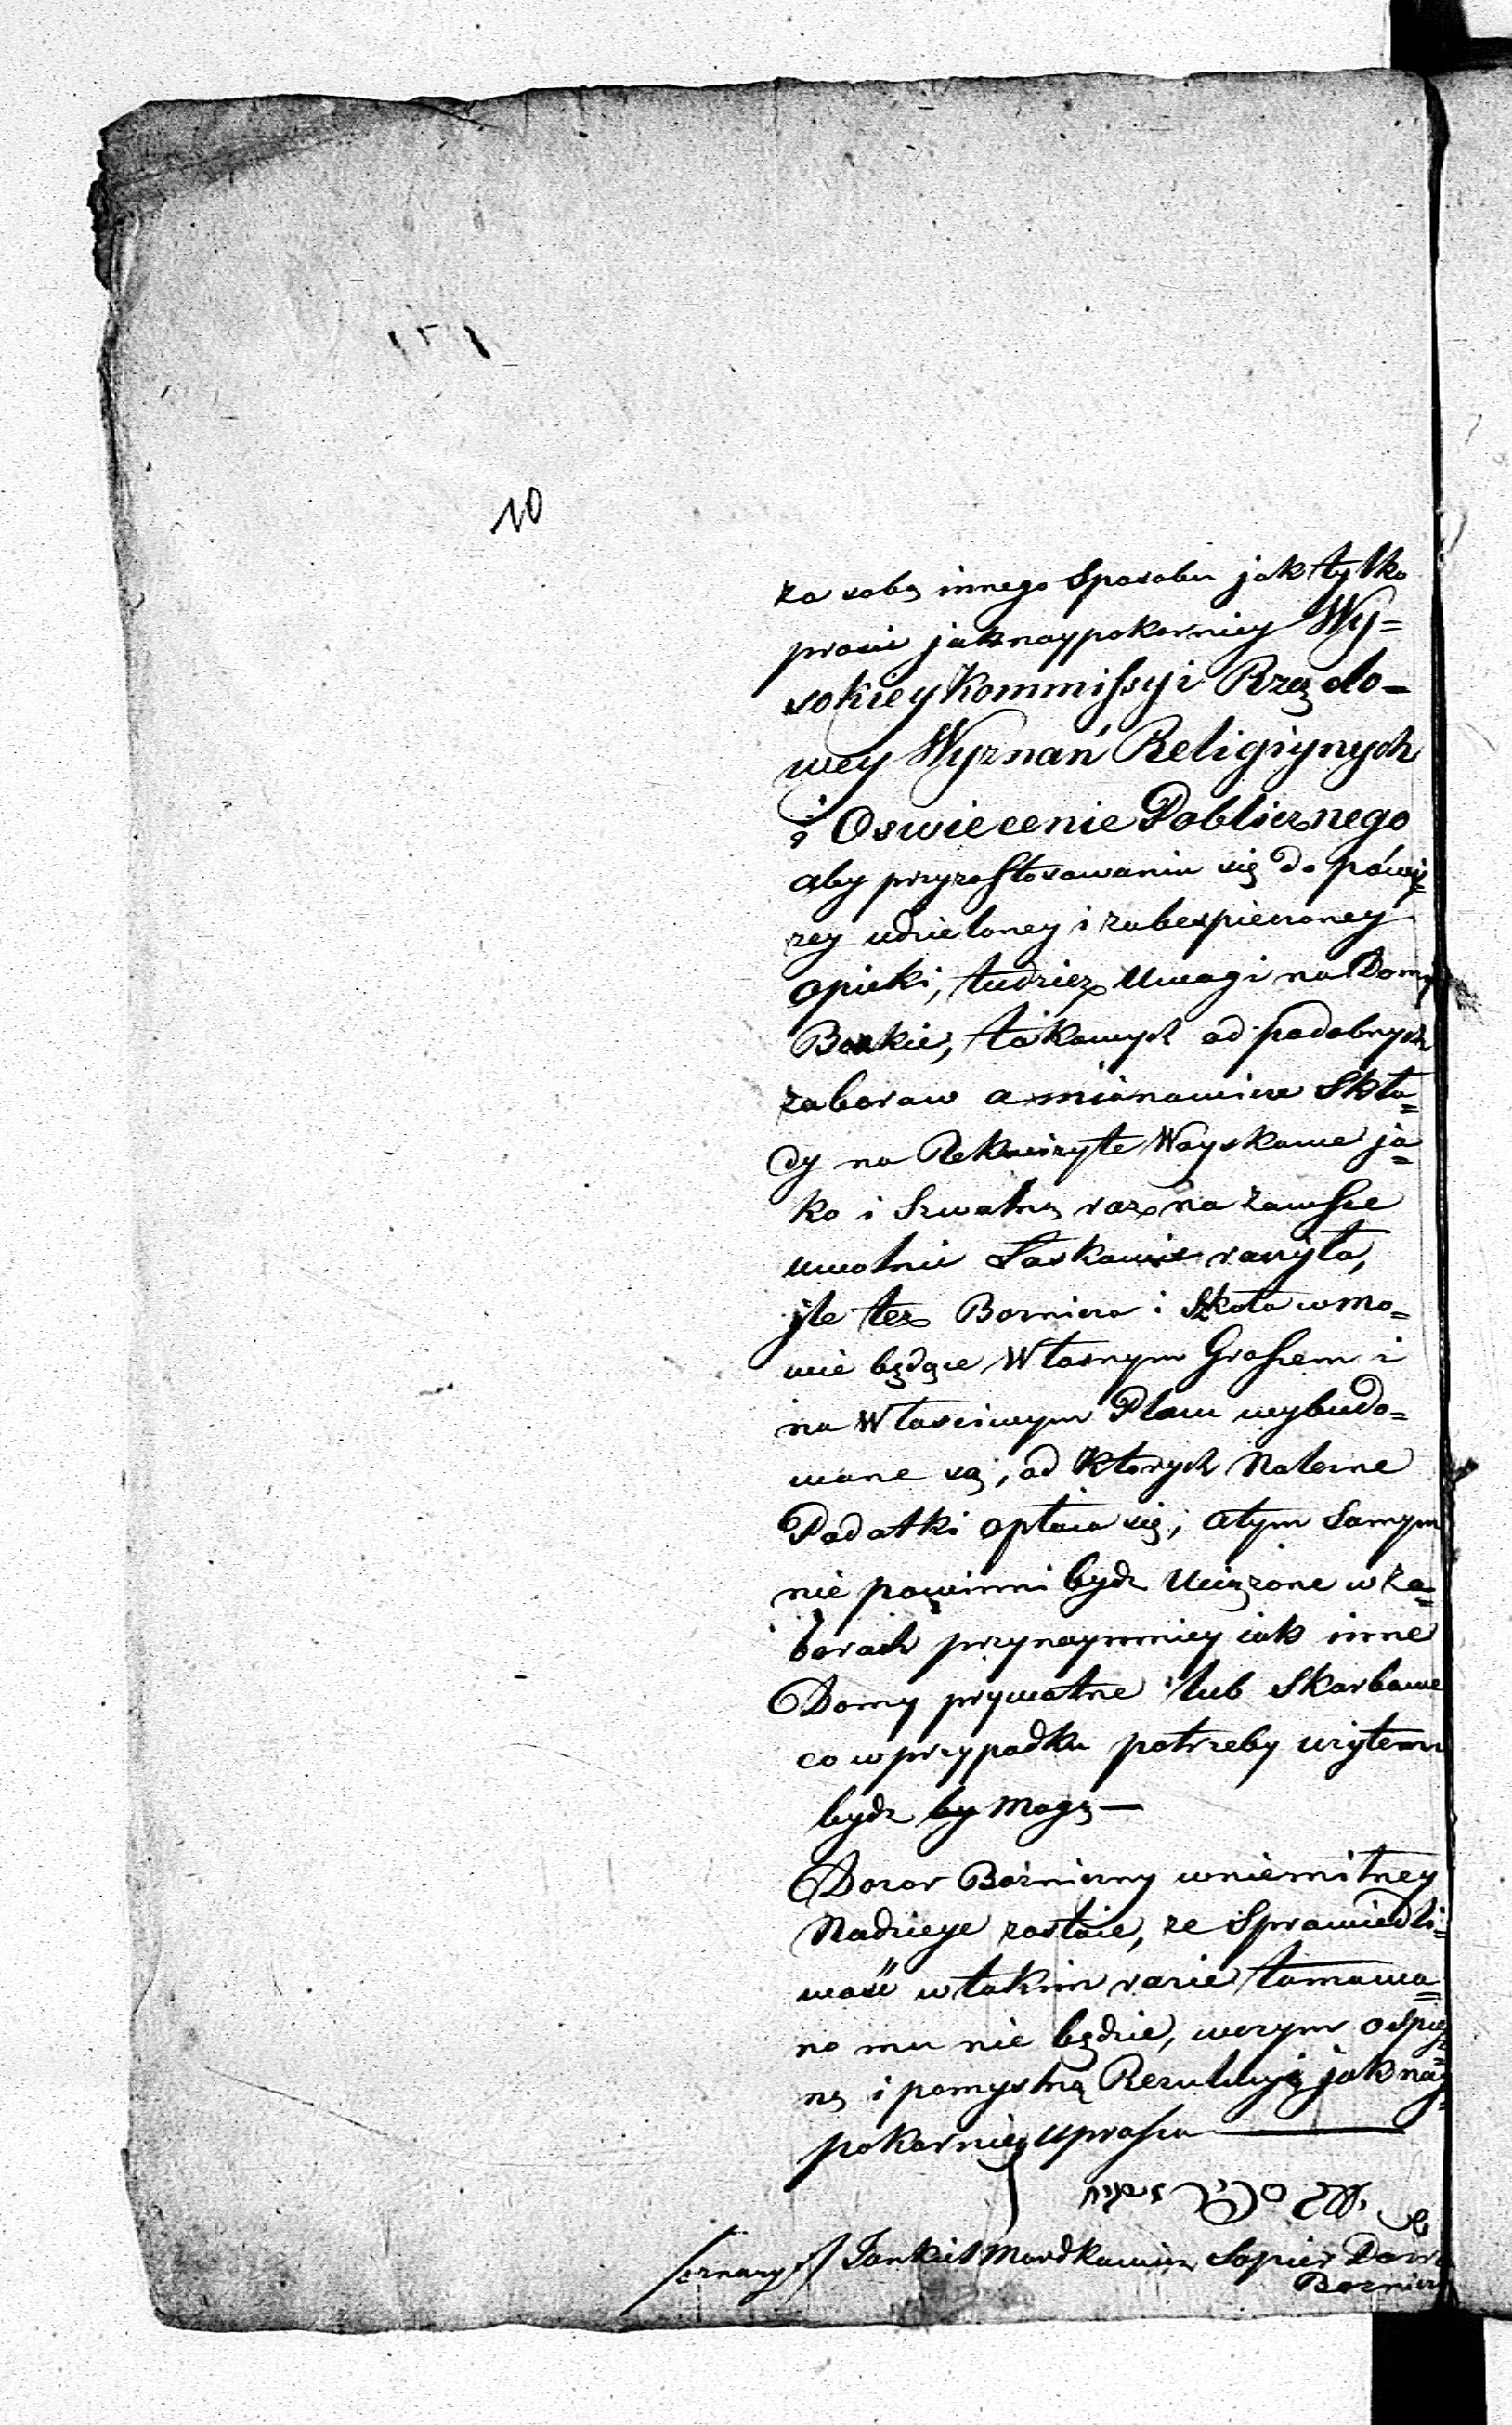 10
za sobą innego Sposobu jak tylko
prosić jaknaypokorniey Wy=
sokiey Kommissyi Rządo-
wey Wyznań Religiynych
i Oswiecenie Poblicznego
aby przyzastosowaniu się do powÿ=
zey udzieloney i zabespieczoney
opieki, tudzież Uwagi na Domy
Bozkie, takowych od podobnych
zaborow a mianowicie Skła=
dy na Rekwizyta Woyskowe ja=
ko i Szwalną raz na zawsze
uwolnić Łaskawie raczyła,
jle też Bornica i Szkoła w mo=
wie będące Własnym Groszem i
na Własciwym Placu wybudo=
wane są, od Ktorych Należne
Podatki opłaca się, atym Samym
nie powinni bydz Uciążone w Za=
borach przynaymniey iak inne
Domy prywatne lub Skarbowe
co w przypadku potrzeby użytemi
bydz by Mogą —
Dozor Bożniczny w niemilney
Nadzieje zostaie, ze Sprawiedli=
wość w takim razie tamowa=
no mu nie będzie, w czym o Spie=
ną i pomyslną Rezulucyją jaknay=
pokorniey Uprasza
Jankiel Mordkowicz Sapier Dozor
Boznicz